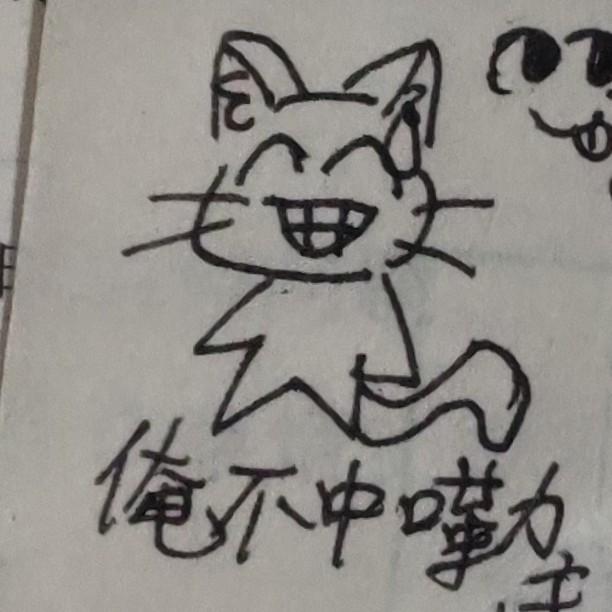 俺不中嘞